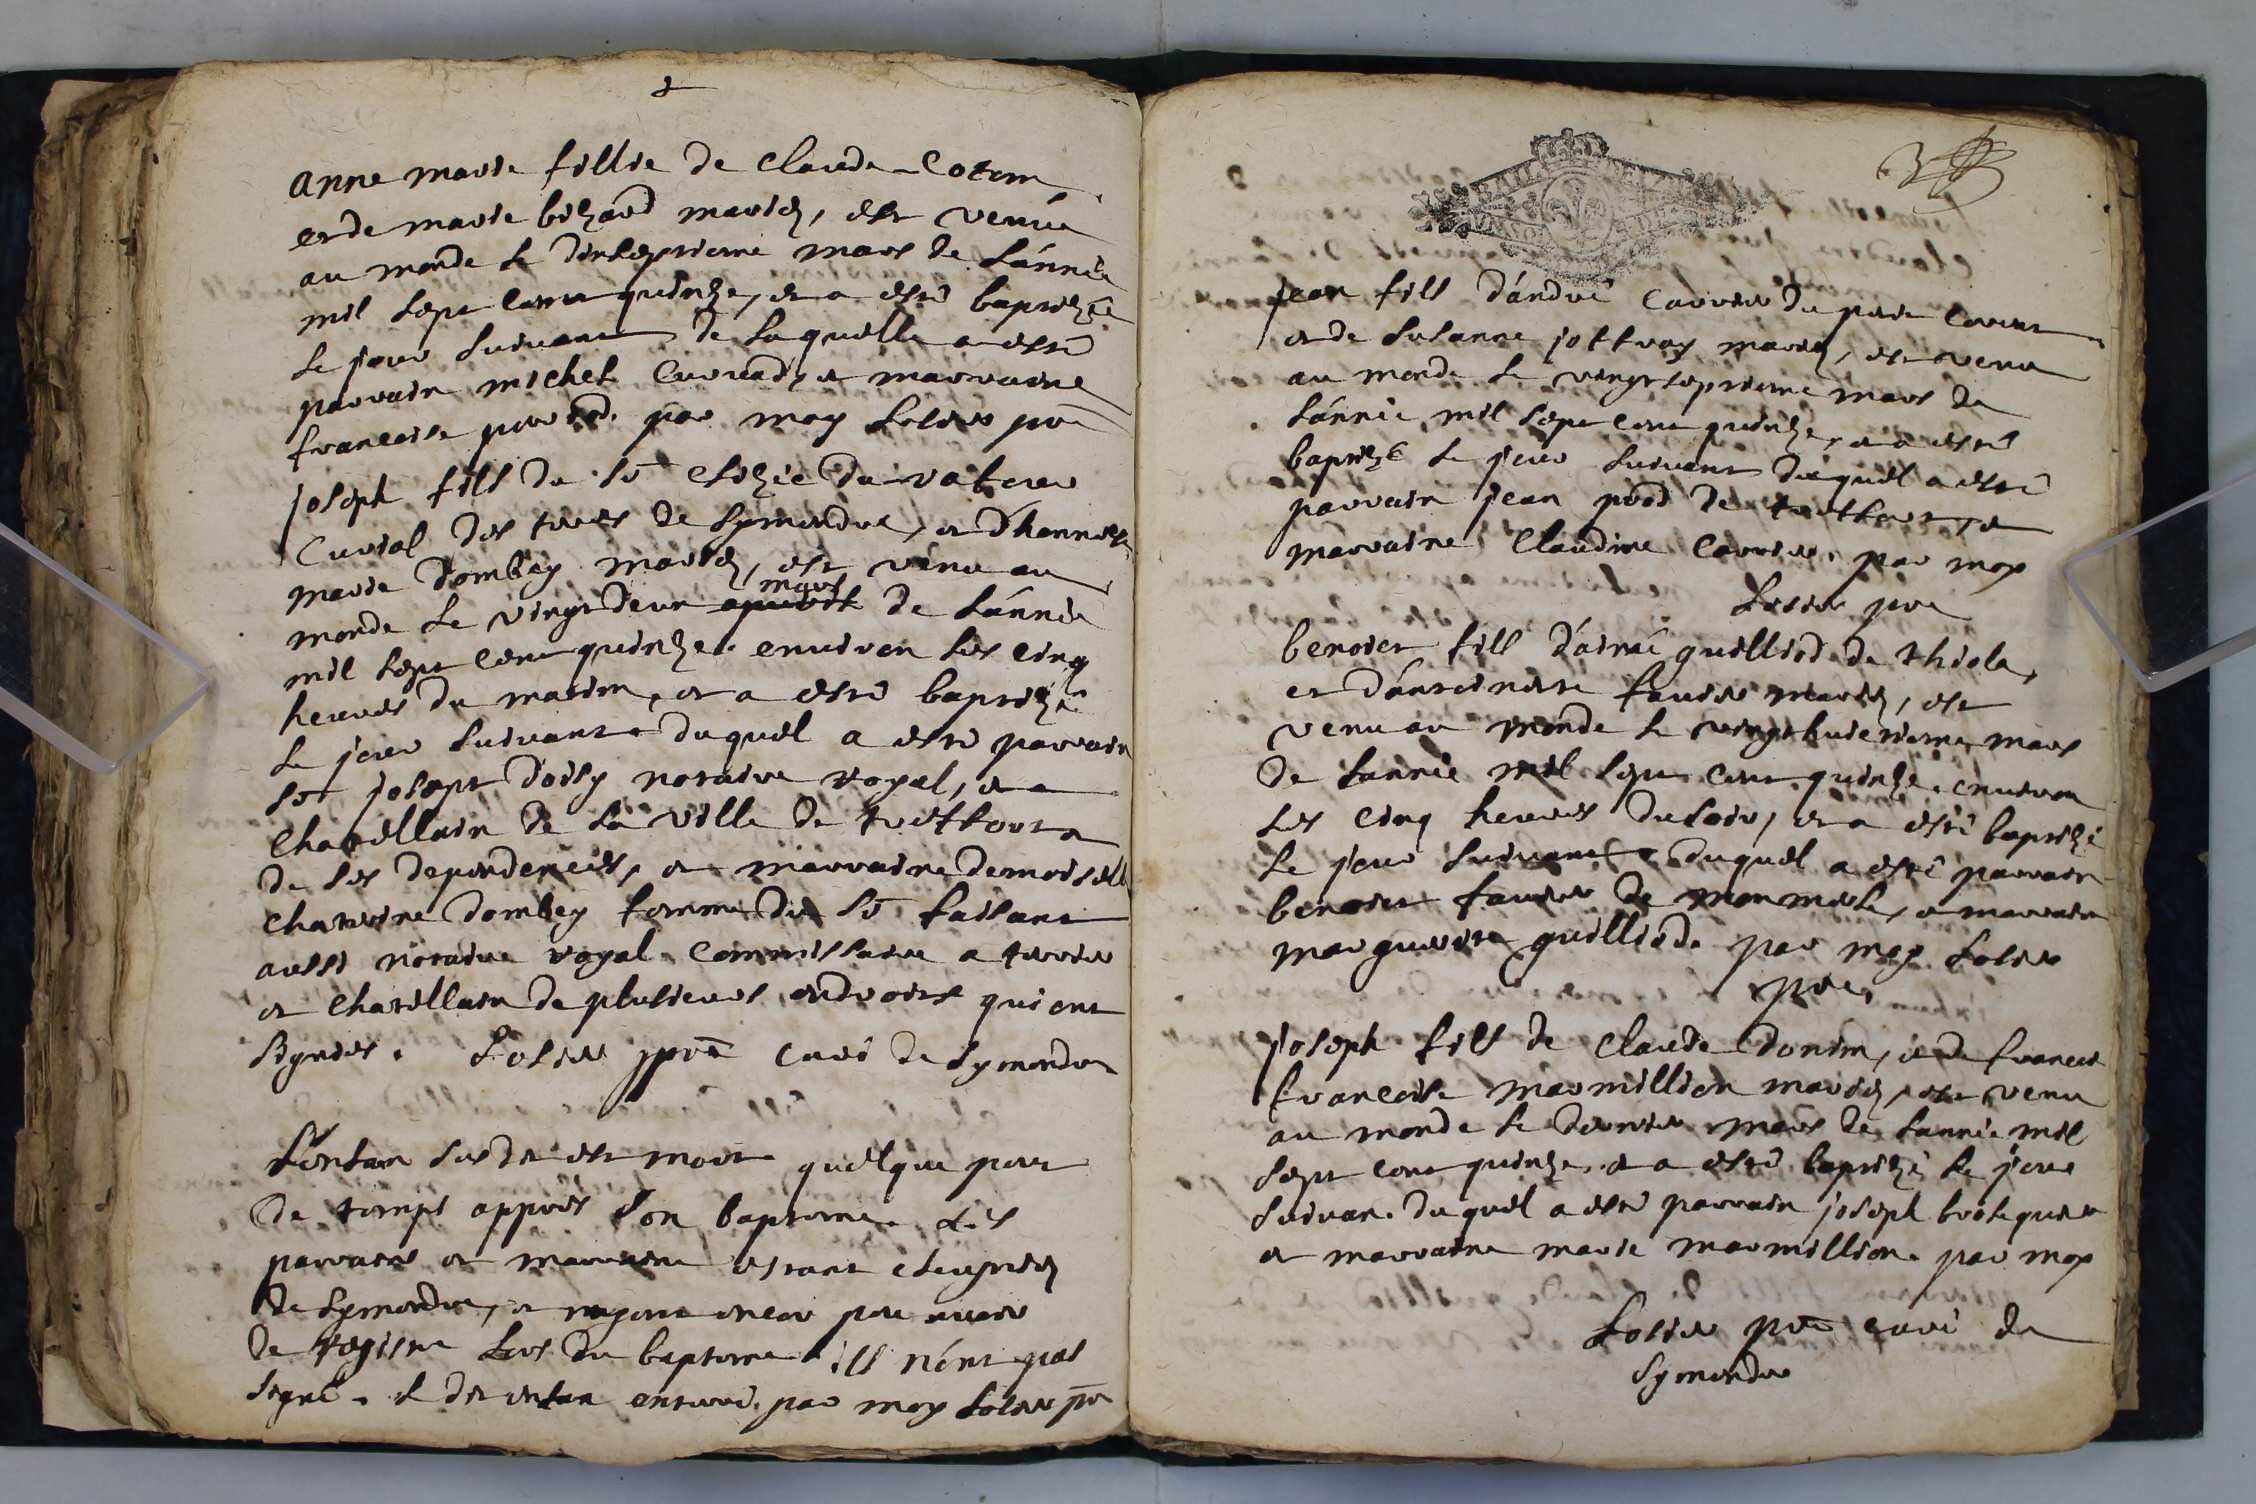 anne marie fillie de claude Cotem
et de marie bizard mariez, est venüe
au monde le dixseptieme mars de l'année
mil sept cent quinze, et a esté baptizée
le jour suivant de laquelle a esté
parrain michel et marraine
francoise par moy Losier pre
joseph fils du sr du
curial des terres de Symandre, et d'honneste
marie dombey mariez, est venu au
monde le vingt deux mars de l'année
mil sept cent quinze environ les cinq
heures du matin, et a esté baptizé
le jour suivant duquel a esté parrain
sr josept doisy notaire royal, et
chatellain de la ville de treffort et
de ses dependences, et marraine demoiselle
dombey femme du sr faisant
aussi notaire royal commissaire a terrier
et chatellain de plusieurs endroits qui ont
signés. Losier pre curé de Symandre
L'enfan susdit est mort quelque peux
de temps apprès son bapteme. Les
parrain et marraine estant eloignez
de Symandre, et encor peu avoir
de registre lors du bapteme ils n'ont pas
signé. le dit enfan enterré par moy Losier pre
3
jean fils d'andré carrier du petit corent
et de susanne joffray mariez, est venu
au monde le vingtseptieme mars de
l'année mil sept cent quinze, et a esté
baptizé le jour suivant duquel a esté
parrain jean de treffort, et
marraine Claudine carrier. par moy
Losier pre
benoict fils d'aimé guilliod de thiole,
et d'antoinette favier mariez, est
venu au monde le vingthuictieme mars
de l'année mil sept cent quinze. environ
les cinq heures du soir, et a esté baptizé
le jour suivant duquel a esté parrain
benoict favier de monmerle, et marrain
marguerite guilliod. par moy Losier
pre
joseph fils de claude donim, et de francois
francoise marmillion mariez, est venu
au monde le dernier mars de l'année mil
sept cent quinze, et a esté baptizé le jour
suivan. duquel a esté parrain joseph
et marraine marie marmillion. par moy
Losier pre curé de
Symandre